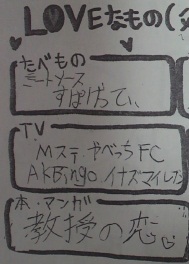 LOVEなもの(
たべもの
ミートソース
すぱげってぃ
TV
Mステ・やべっちFC
AKBingo イナズマイレブ
本・マンガ
教授の恋